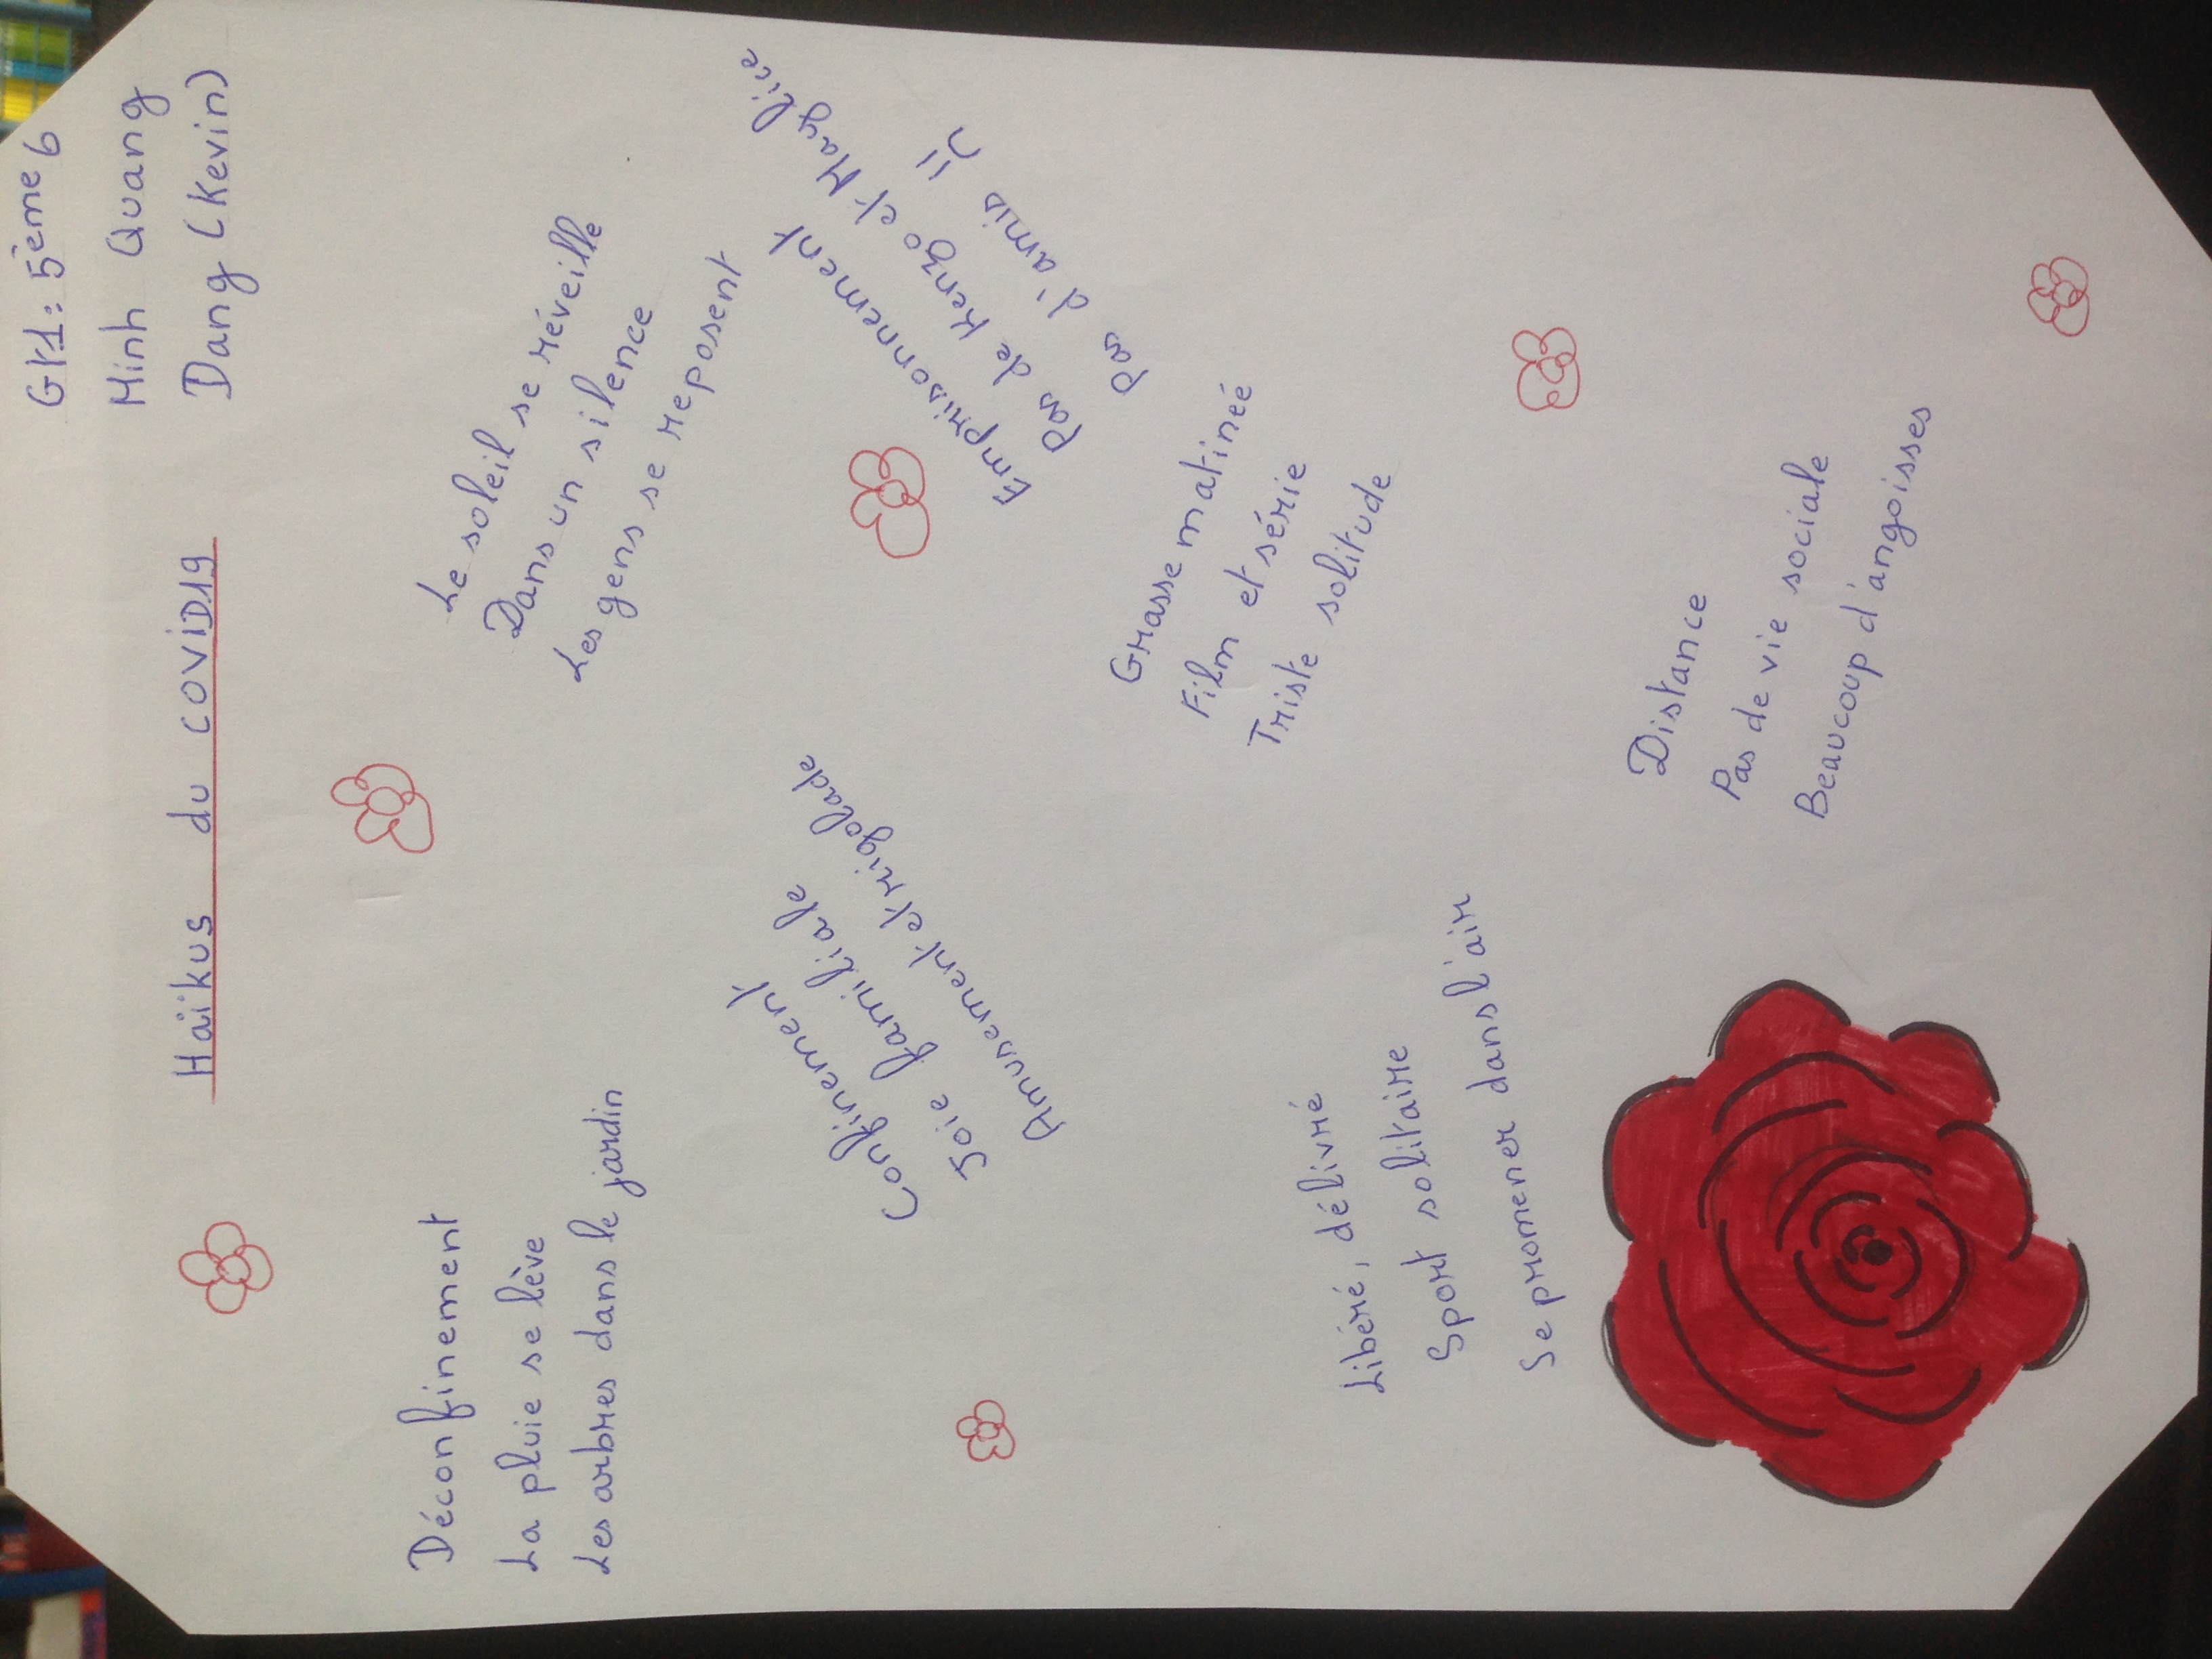 Gr1: 5ème 6
Minh Quang
Dang (Kevin)
Haïkus du COVID19
Déconfinement
La pluie se lève
Les arbres dans le jardin
Le soleil se réveille
Dans un silence
Les gens se reposent
Confinement
Joie familiale
Amusement et rigolade
Emprisonnement
Pas de Kenzo et Maylice
Pas d'amis =(
Grasse matineé
Film et série
Triste solitude
Libéré, délivré
Sport solitaire
Se promener dans l'air
Distance
Pas de vie sociale
Beaucoup d'angoisses